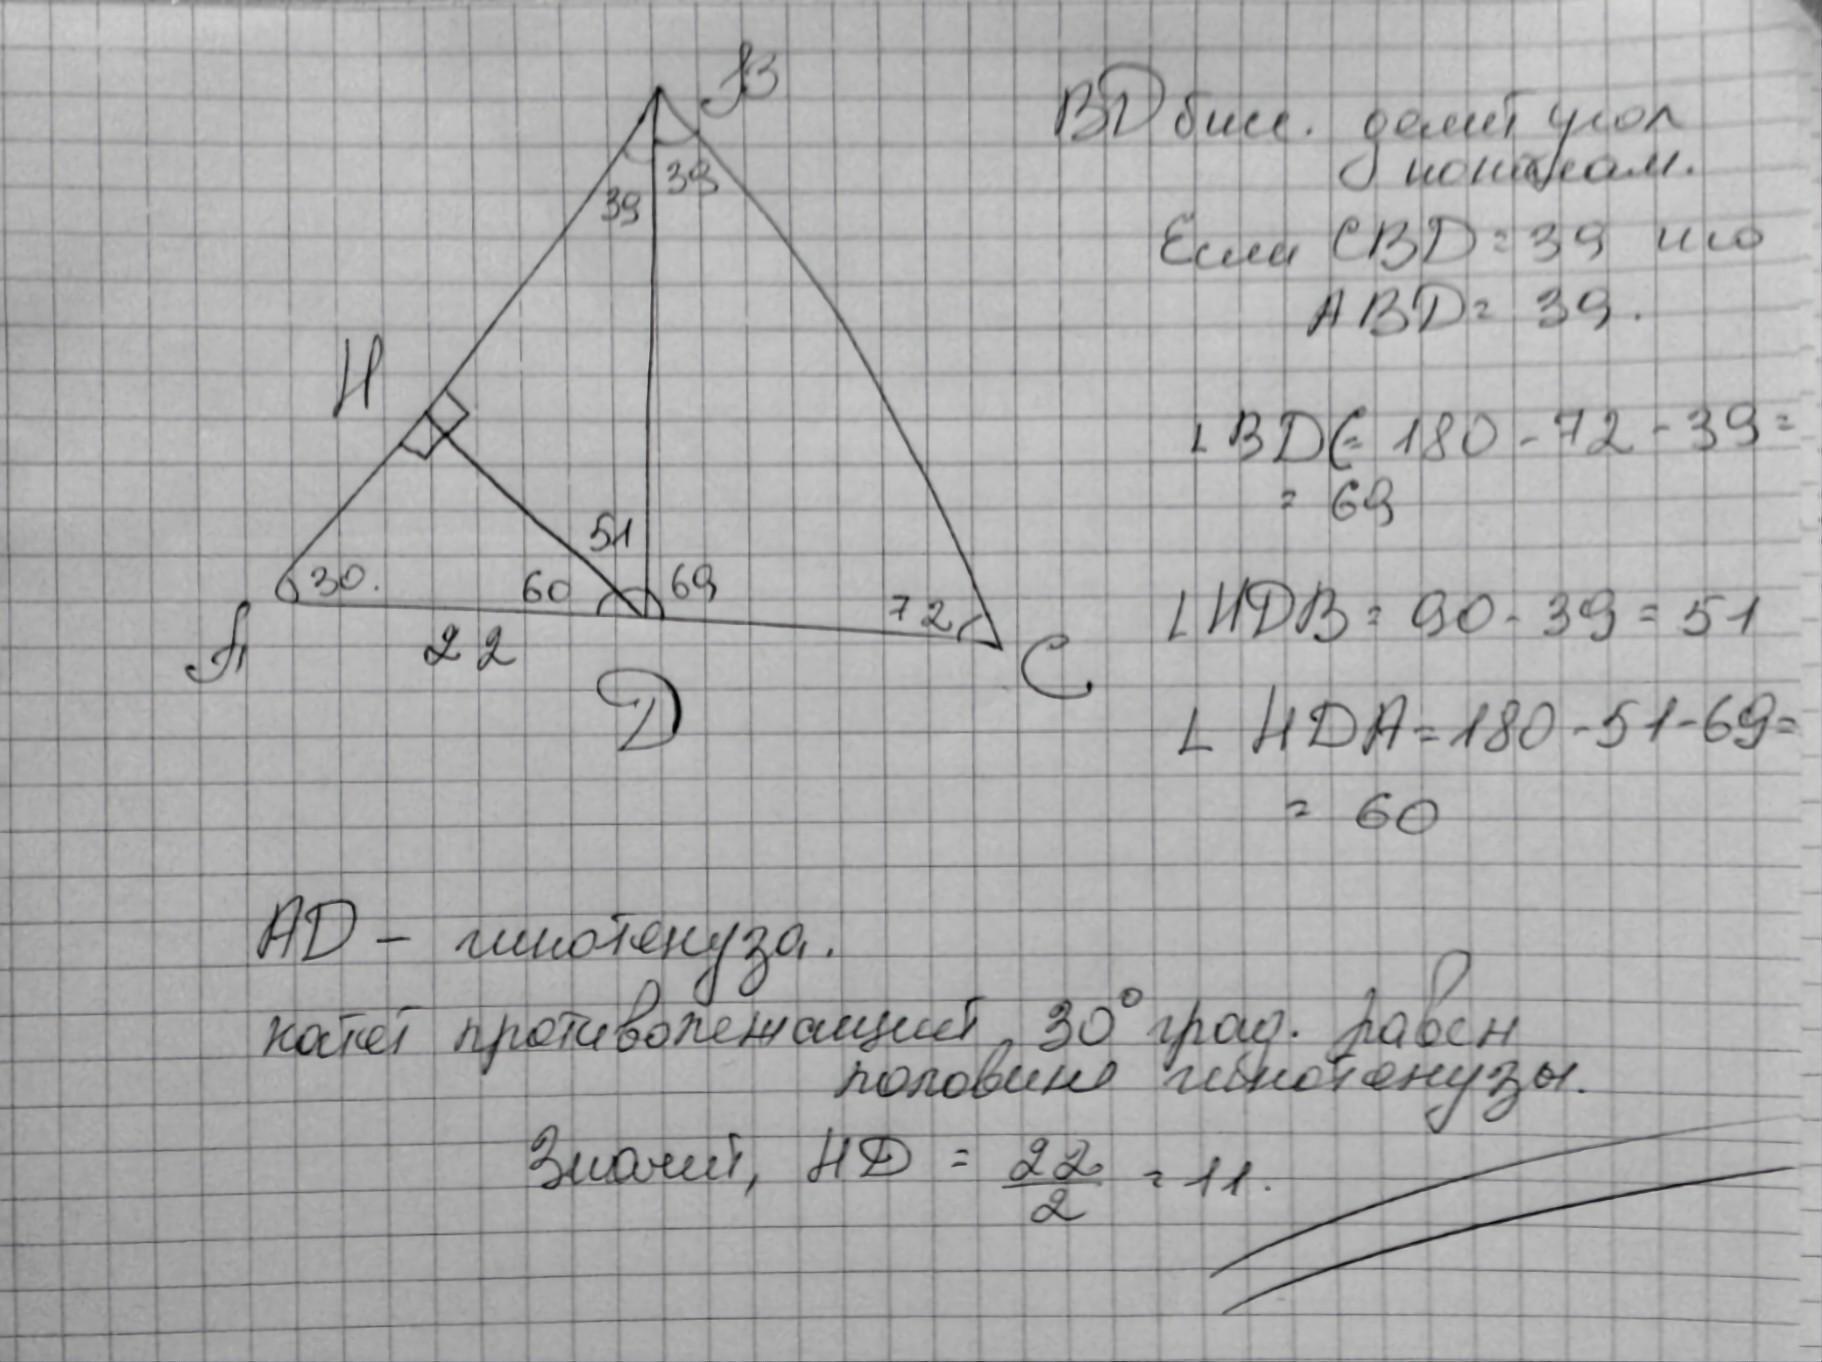 B
39
39
H
51
30.
60
69
72
A
22
D
C
BD бисс. делит угол
пополам.
Если CBD = 39 то
ABD = 39.
∟BDC = 180 - 72 - 39 =
= 69
∟HDB = 90 - 39 = 51
∟HDA = 180 - 51 - 69 =
= 60
AD – гипотенуза.
катет противолежащий 30° град. равен
половине гипотенузы.
Значит, HD = 22/2 = 11.